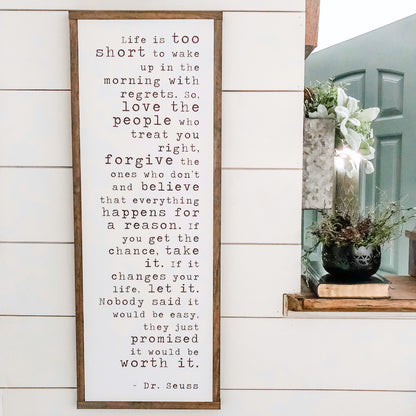 Life is too
short to wake
up in the
morning with
regrets. So,
love the
people who
treat you
right,
forgive the
ones who don't
and believe
that everything
happens for
a reason. If
you get the
chance, take
it. If it
changes your
life, let it.
Nobody said it
would be easy,
they just
promised
it would be
worth it.
- Dr. Seuss